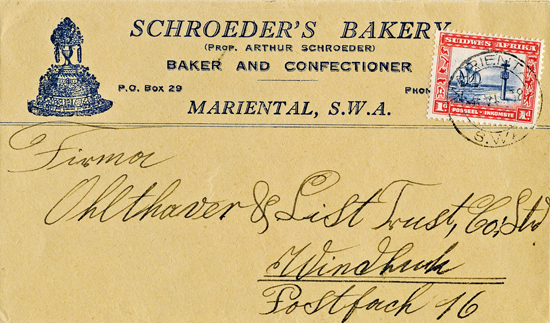 SCHROEDER'S BAKERY
(PROP. ARTHUR SCHROEDER)
BAKER AND CONFECTIONER
P.O. BOX 29
PHON
MARIENTAL, S.W.A.
SUIDWES AFRIKA
1d 1d
POSSEËL-INKOMSTE
MARIENT
S.W.
Firma
Ohlthaver & List Trust, Co. Ltd
Windhuk
Postfach 16